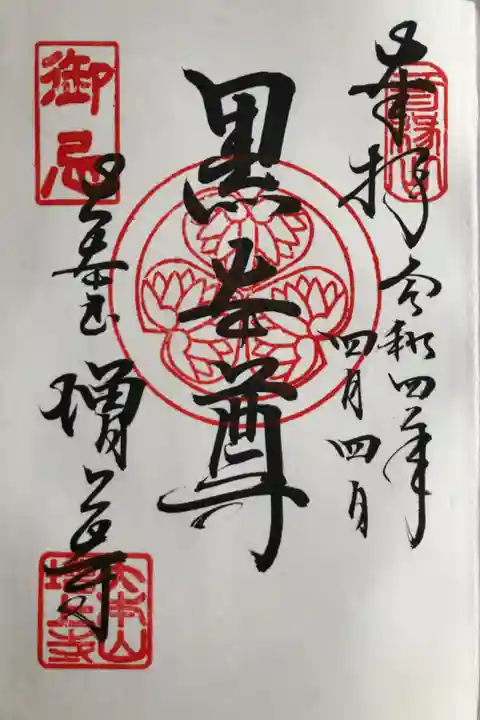 奉拝
三縁山
令和四年
四月四日
黒本尊
御忌
大本山
増上寺
大本山
増上寺